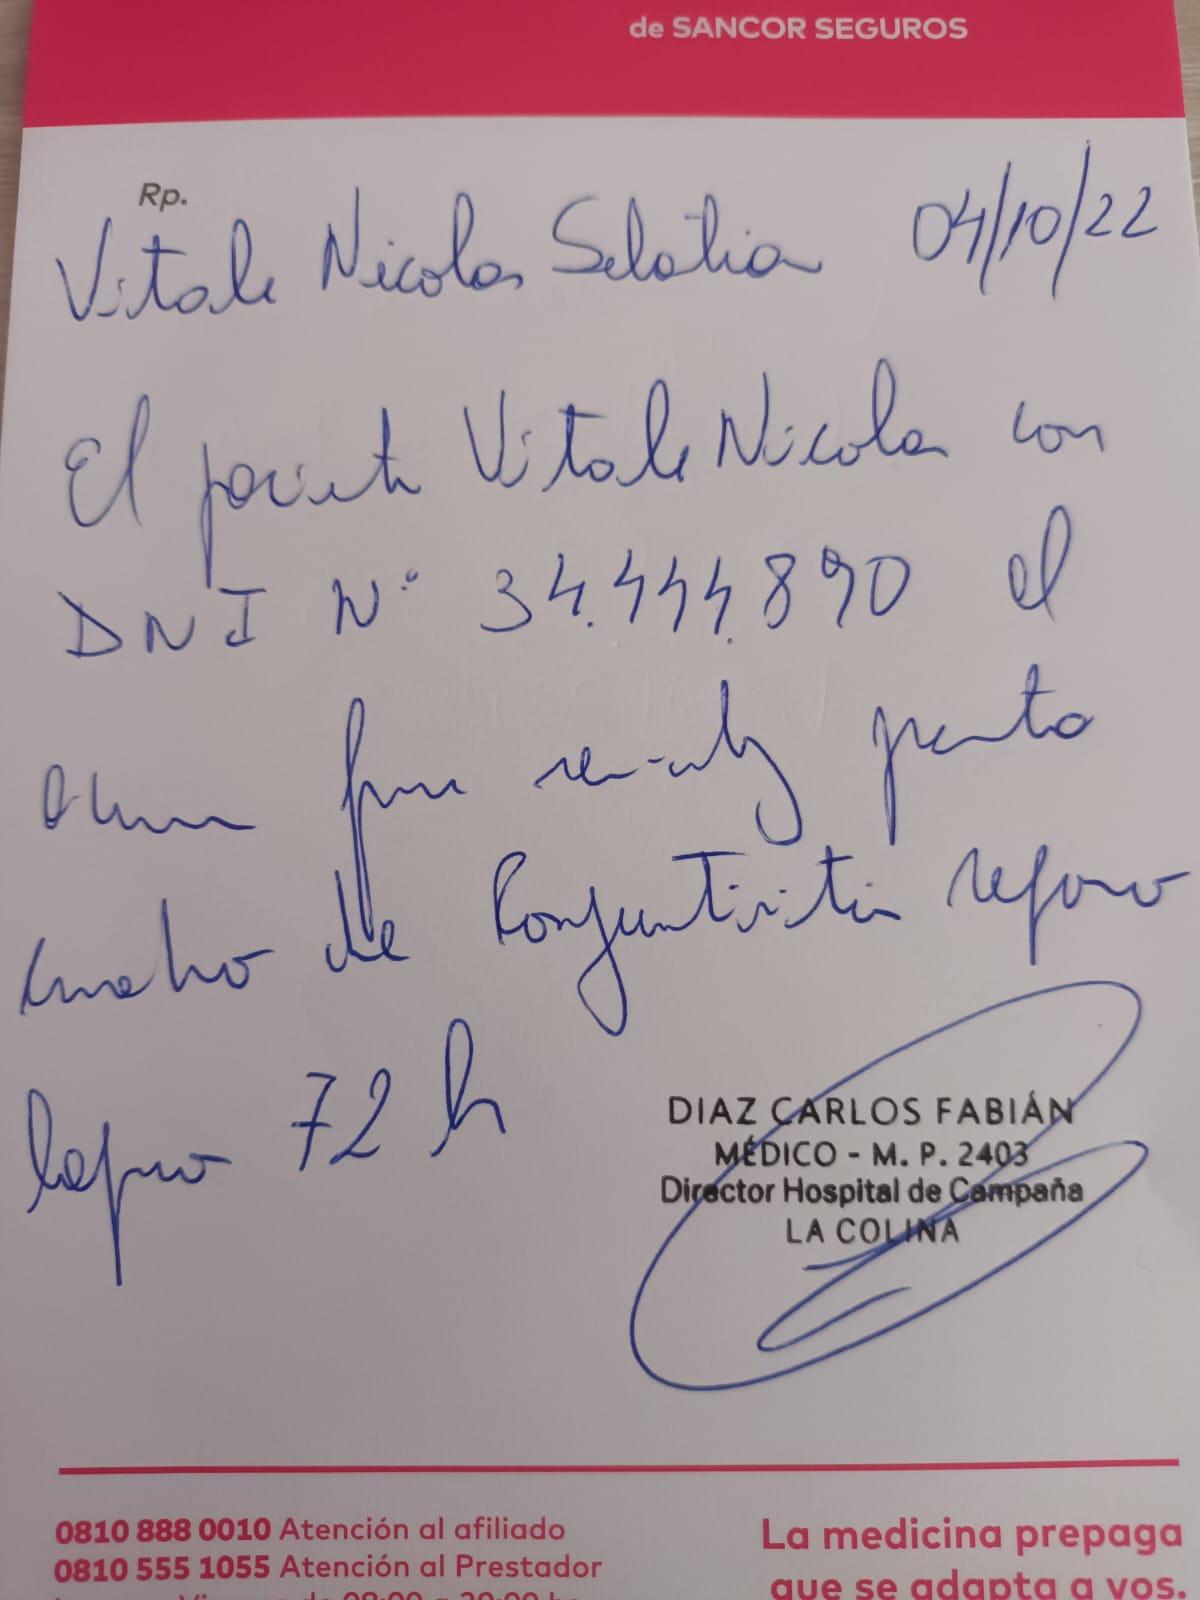 de SANCOR SEGUROS
Rp.
Vitale Nicolas 04/10/22
El paciente Vitale Nicolas con
DNI N° 34.444.890 el
presenta
cuadro de Conjuntivitis reposo
72 h
DIAZ CARLOS FABIÁN
MÉDICO - M. P. 2403
Director Hospital de Campaña
LA COLINA
0810 888 0010 Atención al afiliado
0810 555 1055 Atención al Prestador
La medicina prepaga
que se adapta a vos.